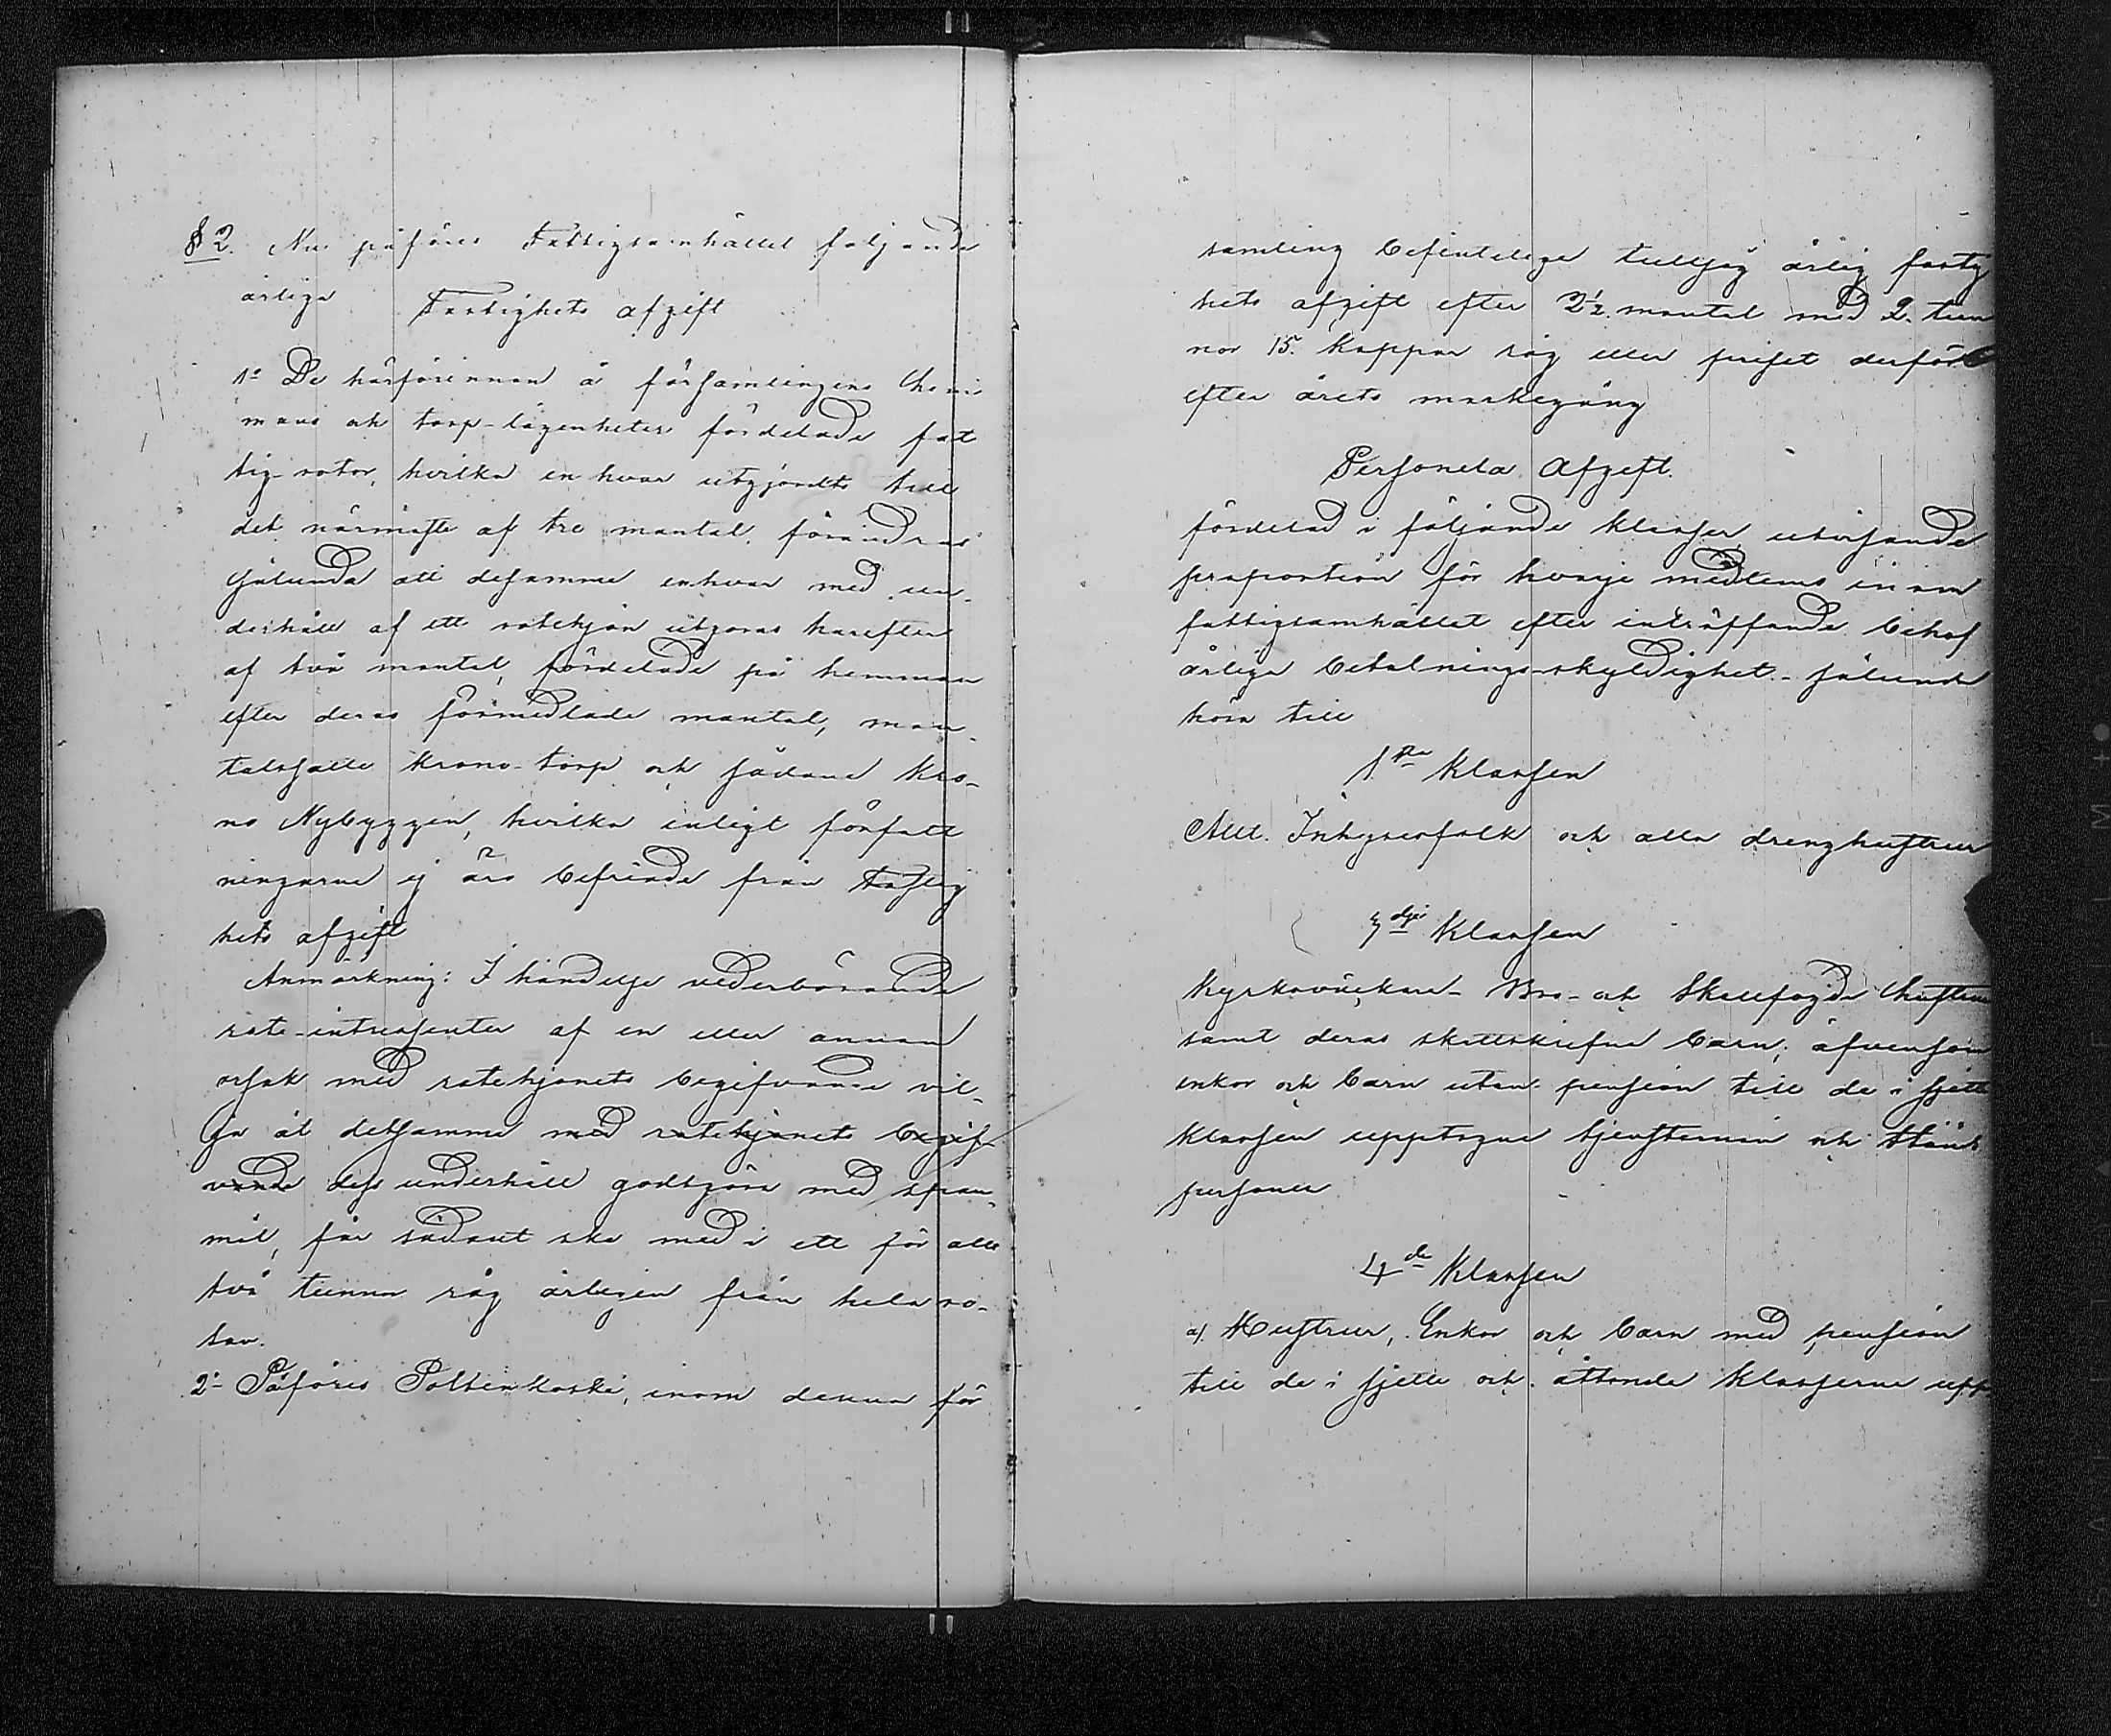 § 2. Nu påföres Fattigsamhället följande
årliga Fastighets afgift
1o De härförinnan å församlingens hem
mans och torp-lägenheter fördelade fat
tig rotor, hvilka en hvar utgjordts till
det närmaste af tre mantal, förändras
sålunda att desamma enhvar med un-
derhåll af ett rotehjon utgöras härefter
af två mantal, fördelade på hemman
efter deras förmedlade mantal, man-
talssatte krono-torp och sådana kro-
no Nybyggen, hvilka enligt författ
ningarne ej äro befriade från fastig
hets afgift
Anmärkning: I händelse vederbörande
rote-intressenter af en eller annan
orsak med rotehjonets begifvande vil-
ja åt detsamma med rotehjonets begif-
vande dess underhåll godtgöra med span-
mål, får sådant ske med i ett för allt
två tunnor råg årligen från hela ro-
tan.
2o Påföres Poltinkoski, inom denna för
samling befinteliga tullsåg årlig fastig
hets afgift efter 2 1/2 mantal med 2 tun
nor 15. kappar råg eller priset derför
efter årets markegång
Personela Afgift.
fördelad i följande klasser utvisande
proportion för hvarje medlems inom
fattigsamhället efter inträffande behof
årliga betalnings-skyldighet - sålunda
höra till
1sta Klassen
Allt Inhysesfolk och alla drenghustrur
3dje Klassen
Kyrkoväktare- Bro- och Skallfogde hustrur
samt deras skattskrifne barn; äfvensom
enkor och barn utan pension till de i sjette
klassen upptagne tjenstemän och stånds
personer
4de Klassen
a). Hustrur, Enkor och barn med pension
till de i sjette och åttonde klasserne upp